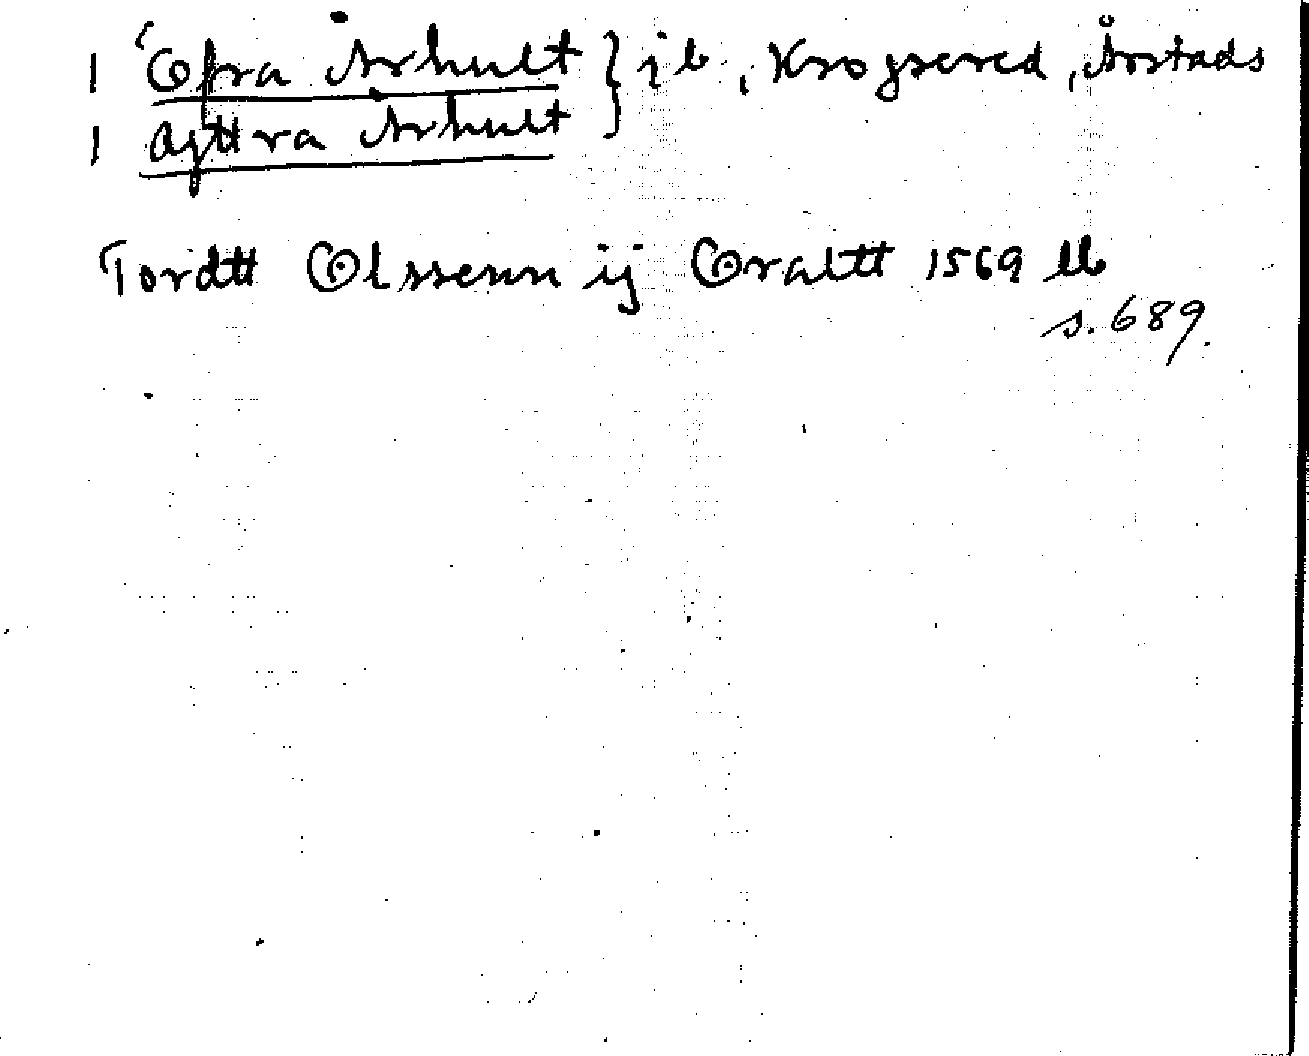 1 Öfra Århult } jb, Krogsered, Årstads
1 Ayttra Århult
Tordtt Olssenn ij Oraltt 1569 lb
s. 689.